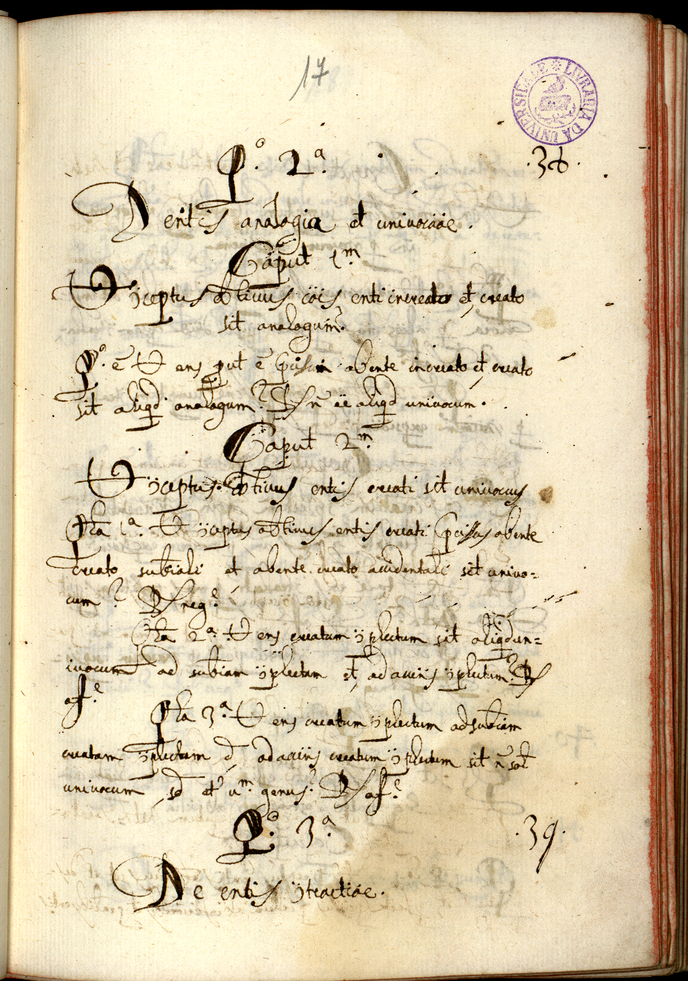 17
LIVRARIA DA UNIVERSIDADE
Q.º 2.ª .38.
De entis analogia et univocae.
Caput 1.m
U ceptus obtivus cois enti increato et creato
sit analogum?
Q.º ē U ens put ē abente increato et creato
sit aliqd analogum? R n ee aliqd univocum.
Caput 2.m
U ceptus obtivus entis creati sit univocus
Qta 1.ª U ceptus obtivus entis creati abente
creato subiali et abente creato accidentali sit univo-
cum? R neg.e
Qta 2.ª U ens creatum plectum sit aliqd un=
ivocum ad subiam plectam et ad accins plectum? R
af.e
Qta 3.ª U ens creatum plectum ad subiam
creatam plectum ad accins creatum plectum sit n sol
univocum, sd et v.m genus? R af.e
Q.º 3.ª .39.
De entis tractiae.